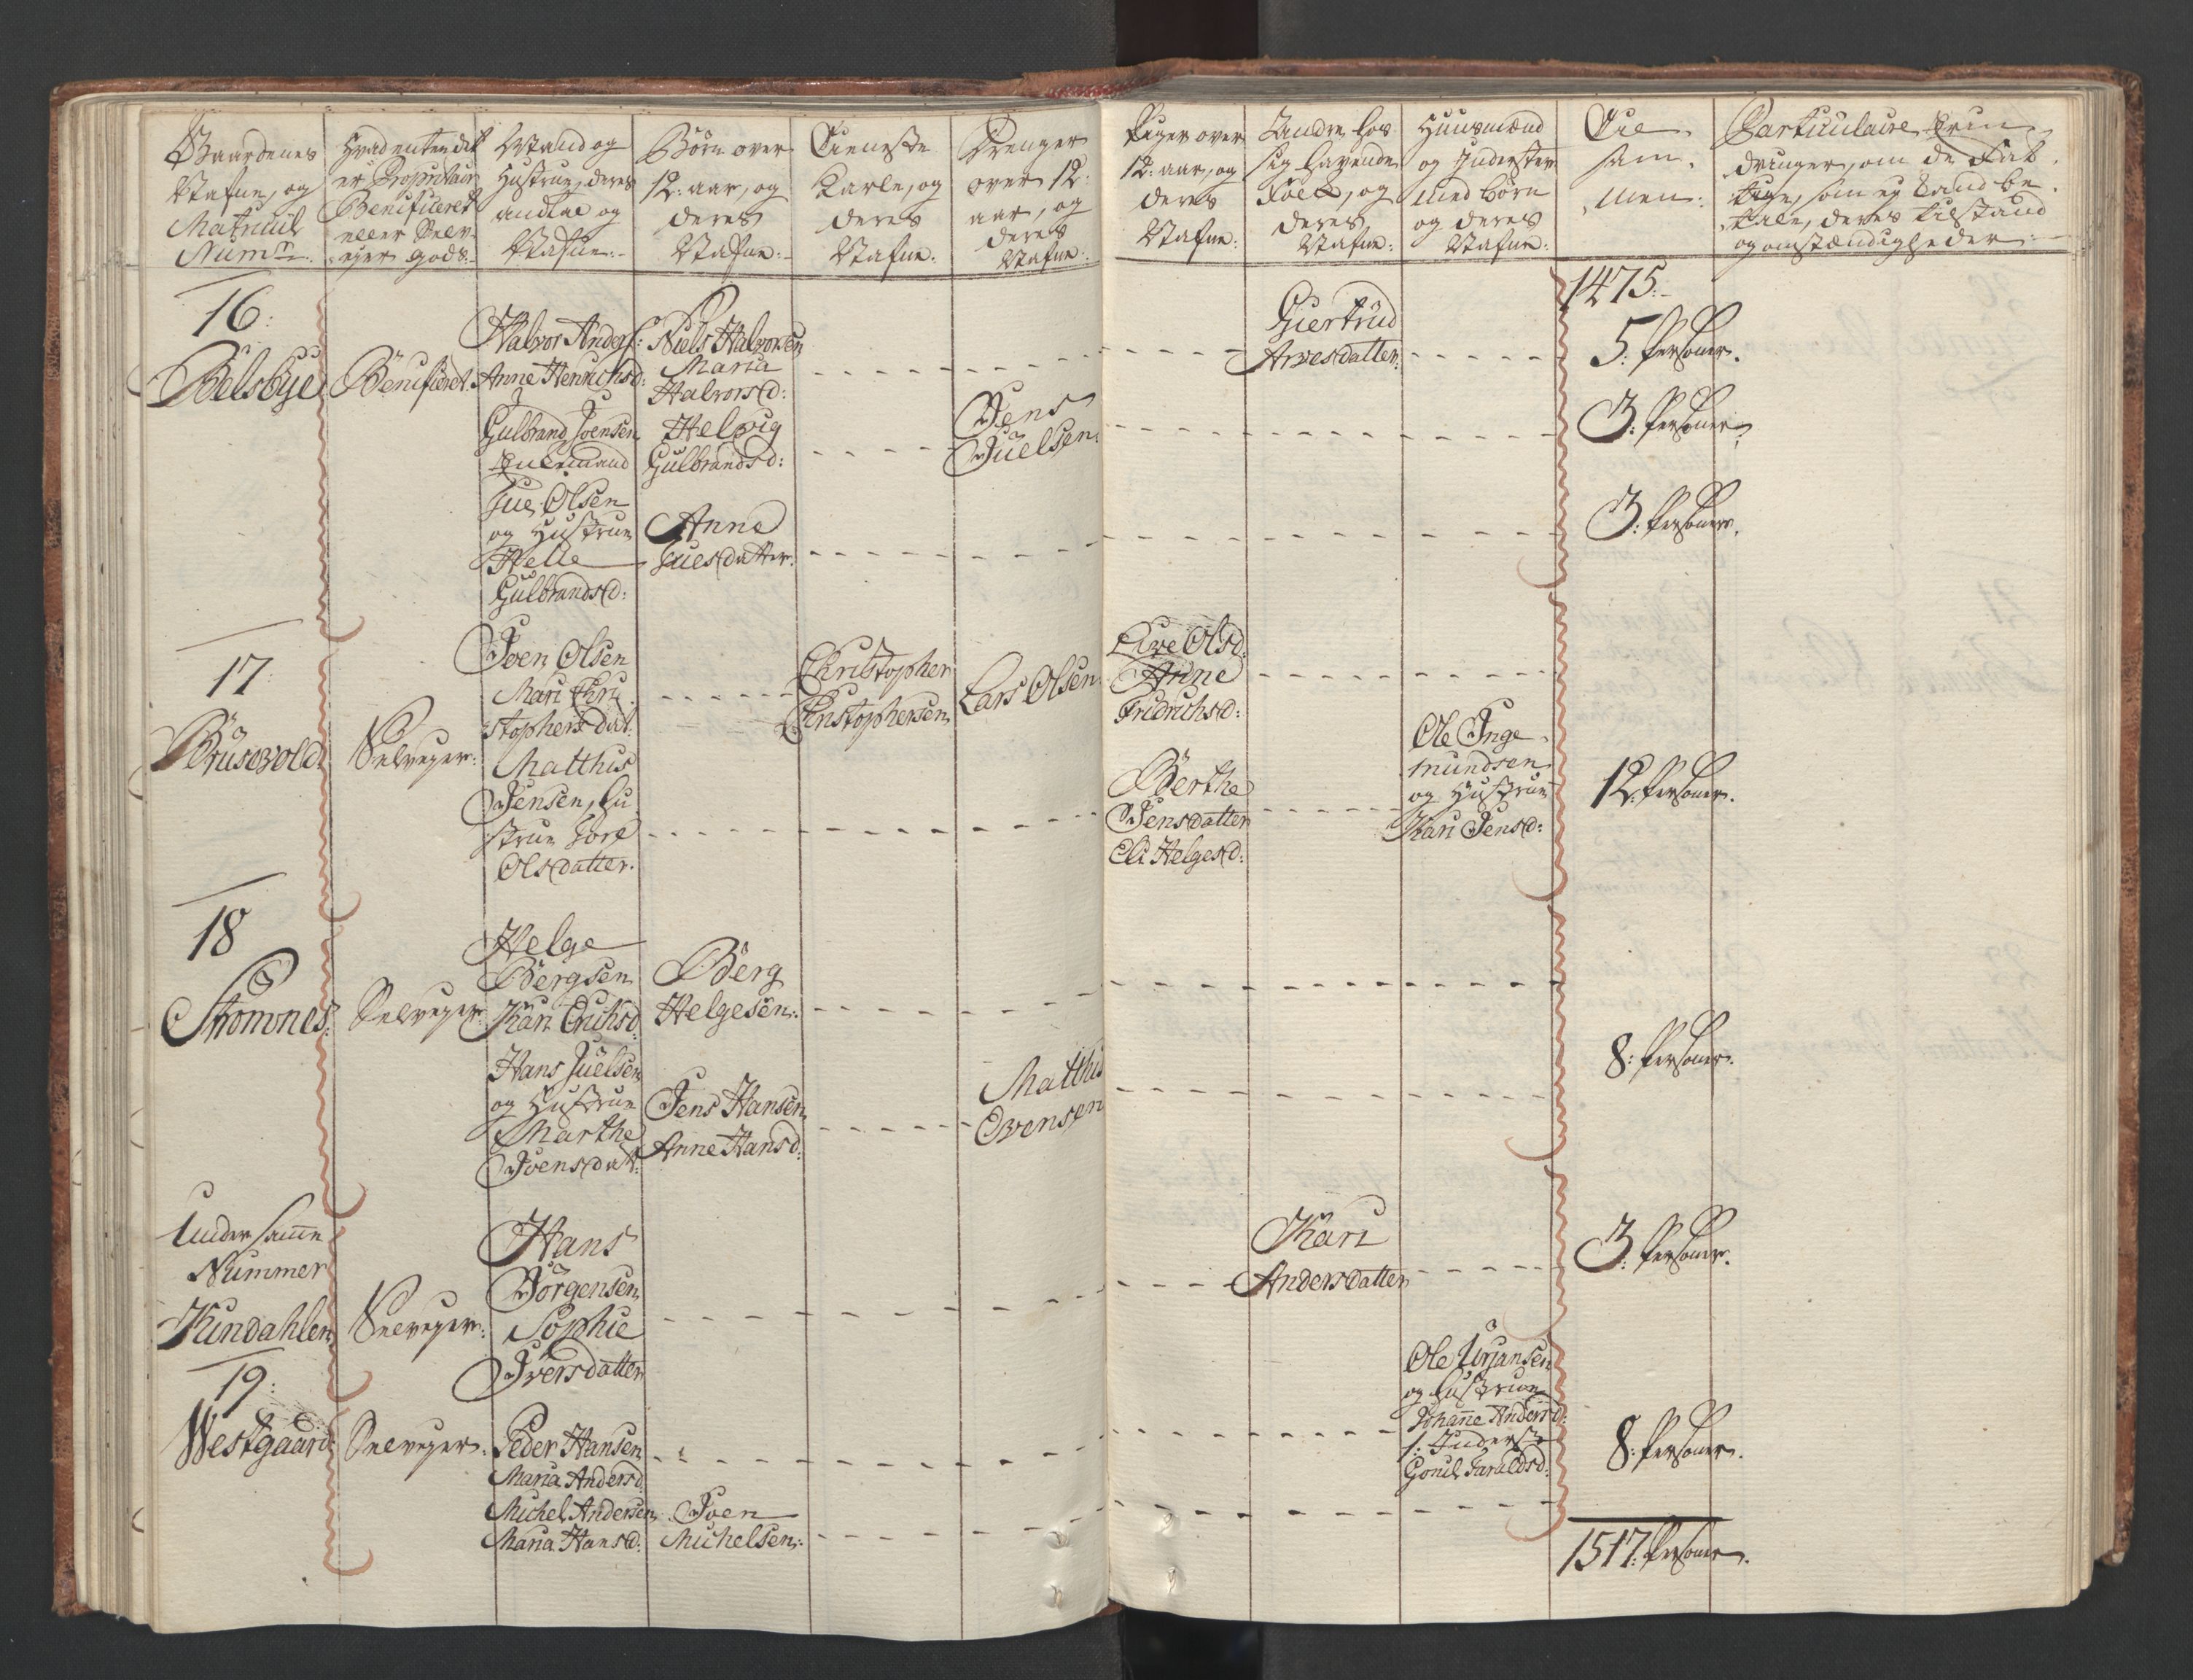 Gaardenes
Nafne, og
Matricul
Num:
Hvad enten det
er Proprietair
Beneficeret
eller Selv-
ejer gods.
Mand og
Hustrue, deres
andtal og
Nafne:
Børn over
12: aar, og
deres
Nafne:
Tieneste
Karle, og
deres
Nafne:
Drenger
over 12:
aar, og
deres
Nafne:
Piger over
12: aar, og
deres
Nafne:
Andre hos
sig havende
Folk, og
deres
Nafne:
Huusmænd
og Inderster
med børn
og deres
Nafne:
Til-
sam-
men:
Particulaire Erin-
dringer, om de Fat-
tige, som ej kand be-
tale, deres tilstand
og omstændigheder:
1475.
16:
Belsbye
Beneficeret.
Halvor Anders:
Anne Henrichsd:
Niels Halvorsen
Maria
Halvorsd:
Giertrud
Arvesdatter.
5: Personer.
Gulbrand Joensen
Enkemand
Helvig
Gulbrandsd:
Jens
Juelsen:
3: Personer.
Jue Olsen
og Hustrue
Pelle
Gulbrandsd:
Anne
Juesdatter.
3: Personer.
17:
Brusevold
Selvejer:
Joen Olsen
Mari Chri-
stophersdat:
Christopher
Christophersen
Lars Olsen
Live Olsd:
Anne
Fridrichsd:
Matthis
Jensen, hu-
strue Jore
Olsdatter.
Berthe
Jensdatter
Eli Helgesd:
Ole Inge-
mundsen
og Hustrue
Kari Jensd:
12: Personer.
18
Stromnes:
Selvejer
Helge
Bergsen
Kari Erichsd:
Berg
Helgesen:
Hans Juelsen
og Hustrue
Marthe
Joensdat:
Jens Hansen
Anne Hansd:
Matthis
Evensen
8: Personer.
Under samme
Nummer
Kindahlen
Selvejer:
Hans
Jörgensen
Sophie
Iversdatter
Kari
Andersdatter
3: Personer.
19:
Westgaard
Selvejer.
Peder Hansen
Maria Andersd:
Michel Andersen
Maria Hansd:
Joen
Michelsen:
Ole Urjansen
og hustrue
Johanne Andersd:
1: Inderst
Gonil Haraldsd:
8: Personer.
1517: Personer.